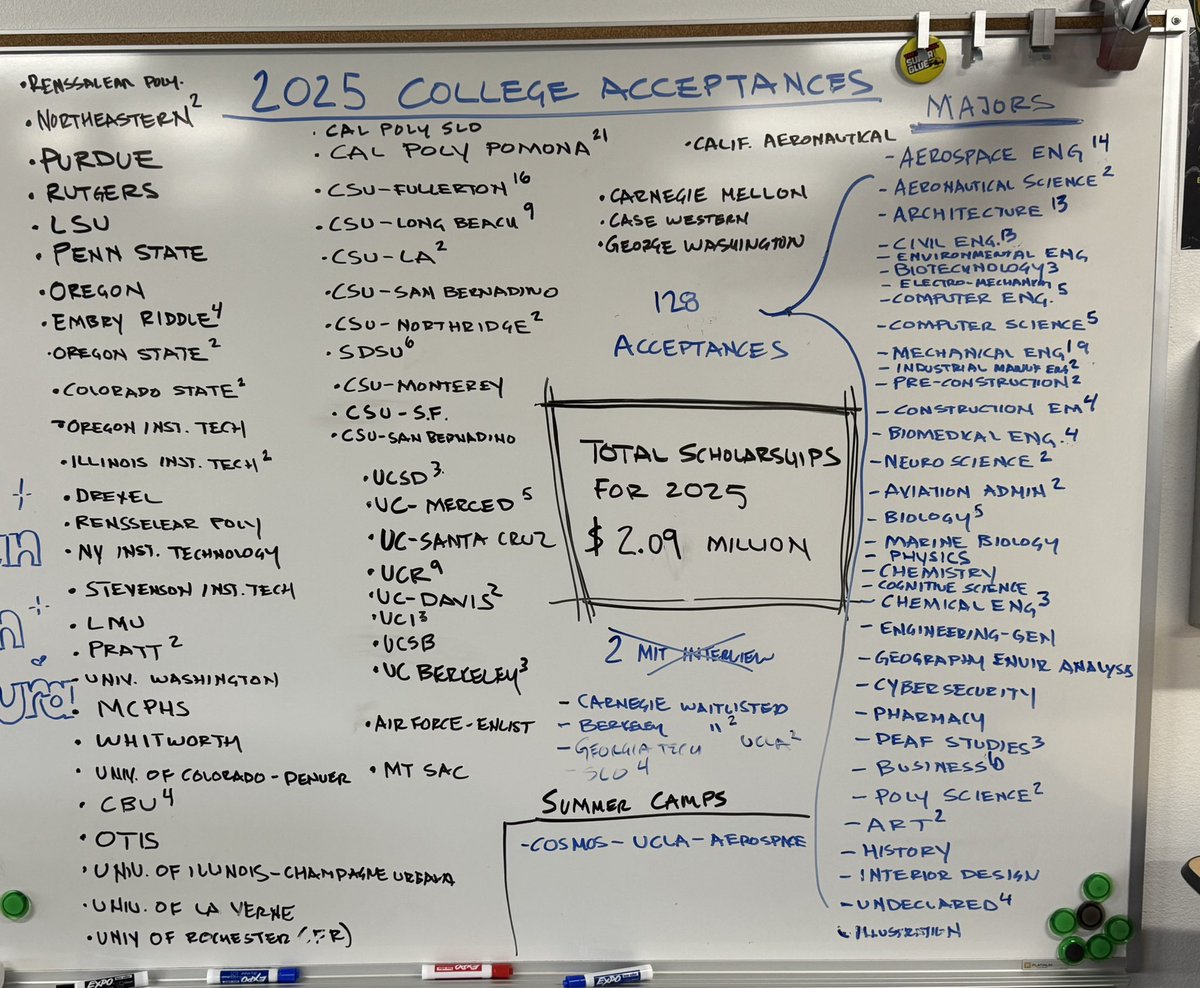 2025 COLLEGE ACCEPTANCES
• RENSSALEAR POLY.
• NORTHEASTERN 2
• PURDUE
• RUTGERS
• LSU
• PENN STATE
• OREGON
• EMBRY RIDDLE 4
• OREGON STATE 2
• COLORADO STATE 2
• OREGON INST. TECH
• ILLINOIS INST. TECH 2
• DREXEL
• RENSSELEAR POLY
• NY INST. TECHNOLOGY
• STEVENSON INST. TECH
• LMU
• PRATT 2
- UNIV. WASHINGTON
• MCPHS
• WHITWORTH
• UNIV. OF COLORADO - DENVER
• CBU 4
• OTIS
• UNIV. OF ILLINOIS - CHAMPAGNE URBANA
• UNIV. OF LA VERNE
• UNIV OF ROCHESTER
• CAL POLY SLO
• CAL POLY POMONA 21
• CSU - FULLERTON 16
• CSU - LONG BEACH 9
• CSU - LA 2
• CSU - SAN BERNADINO
• CSU - NORTHRIDGE 2
• SDSU 6
• CSU - MONTEREY
• CSU - S.F.
• CSU - SAN BERNADINO
• UCSD 3
• UC - MERCED 5
• UC - SANTA CRUZ
• UCR 9
• UC - DAVIS 2
• UCI 3
• UCSB
• UC BERKELEY 3
• AIR FORCE - ENLIST
• MT SAC
• CALIF. AERONAUTICAL
• CARNEGIE MELLON
• CASE WESTERN
• GEORGE WASHINGTON
128
ACCEPTANCES
TOTAL SCHOLARSHIPS
FOR 2025
$ 2.09 MILLION
2 MIT INTERVIEW
- CARNEGIE WAITLISTED
- BERKELEY " 2
- GEORGIA TECH UCLA 2
- SLO 4
SUMMER CAMPS
- COSMOS - UCLA - AEROSPACE
MAJORS
- AEROSPACE ENG 14
- AERONAUTICAL SCIENCE 2
- ARCHITECTURE 13
- CIVIL ENG. 13
- ENVIRONMENTAL ENG
- BIOTECHNOLOGY 3
- COMPUTER ENG. 5
- COMPUTER SCIENCE 5
- MECHANICAL ENG 19
- INDUSTRIAL MANUF ENG 2
- PRE-CONSTRUCTION 2
- CONSTRUCTION EM 4
- BIOMEDICAL ENG. 4
- NEURO SCIENCE 2
- AVIATION ADMIN 2
- BIOLOGY 5
- MARINE BIOLOGY
- PHYSICS
- CHEMISTRY
- COGNITIVE SCIENCE
- CHEMICAL ENG 3
- ENGINEERING-GEN
- GEOGRAPHY ENVIR ANALYSS
- CYBERSECURITY
- PHARMACY
- DEAF STUDIES 3
- BUSINESS 6
- POLY SCIENCE 2
- ART 2
- HISTORY
- INTERIOR DESIGN
- UNDECLARED 4
- ILLUSTRATION
EXPO
EXPO
EXPO
EXPO